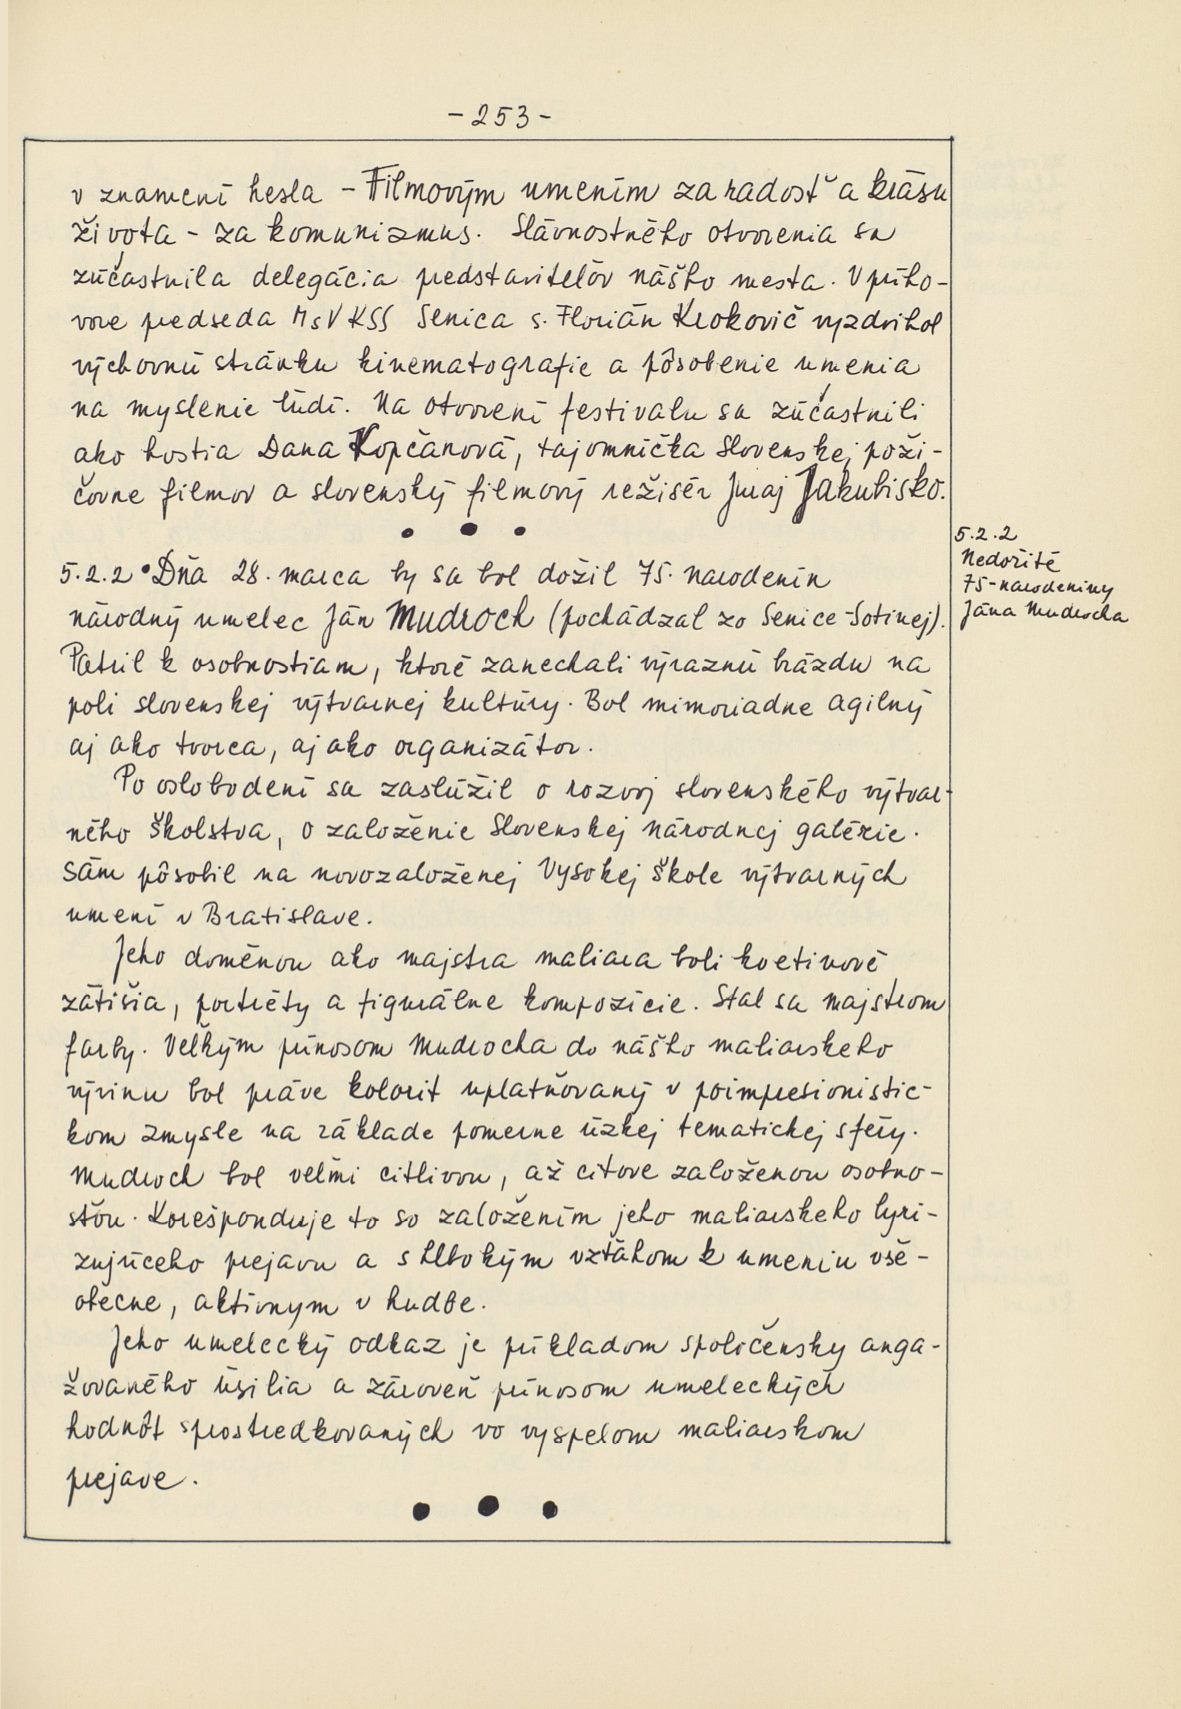 - 253 -
v znamení hesla - Filmovým umením za radosť a krásu
života - za komunizmus. Slávnostného otvorenia sa
zúčastnila delegácia predstaviteľov nášho mesta. V prího-
vore predseda MsV KSS Senica s. Florián Krokovič vyzdvihol
výchovnú stránku kinematografie a pôsobenie umenia
na myslenie ľudí. Na otvorení festivalu sa zúčastnili
ako hostia Dana Kopčanová, tajomníčka Slovenskej poži-
čovne filmov a slovenský filmový režisér Juraj Jakubisko.
• • •
5.2.2 • Dňa 28. marca by sa bol dožil 75. narodenín
národný umelec Ján Mudroch (pochádzal zo Senice-Sotinej).
Patril k osobnostiam, ktoré zanechali výraznú brázdu na
poli slovenskej výtvarnej kultúry. Bol mimoriadne agilný
aj ako tvorca, aj ako organizátor.
Po oslobodení sa zaslúžil o rozvoj slovenského výtvar-
ného školstva, o založenie Slovenskej národnej galérie.
Sám pôsobil na novozaloženej Vysokej škole výtvarných
umení v Bratislave.
Jeho doménou ako majstra maliara boli kvetinové
zátišia, portréty a figurálne kompozície. Stal sa majstrom
farby. Veľkým prínosom Mudrocha do nášho maliarskeho
vývinu bol práve kolorit uplatňovaný v poimpresionistic-
kom zmysle na základe pomerne úzkej tematickej sféry.
Mudroch bol veľmi citlivou, až citove založenou osobno-
sťou. Korešponduje to so založením jeho maliarskeho lyri-
zujúceho prejavu a s hlbokým vzťahom k umeniu vše-
obecne, aktívnym v hudbe.
Jeho umelecký odkaz je príkladom spoločensky anga-
žovaného úsilia a zároveň prínosom umeleckých
hodnôt sprostredkovaných vo vyspelom maliarskom
prejave.
• • •
5.2.2
Nedožité
75-narodeniny
Jána Mudrocha